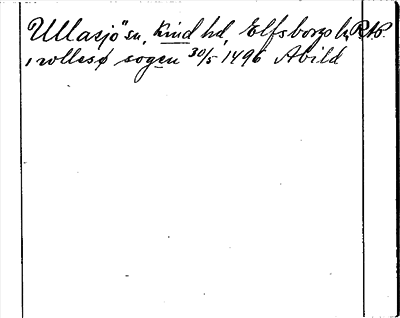 Ullasjö sn, Kind hd, Elfsborgs l. RAP.
i wllesø sogen 30/5 1496 Abild